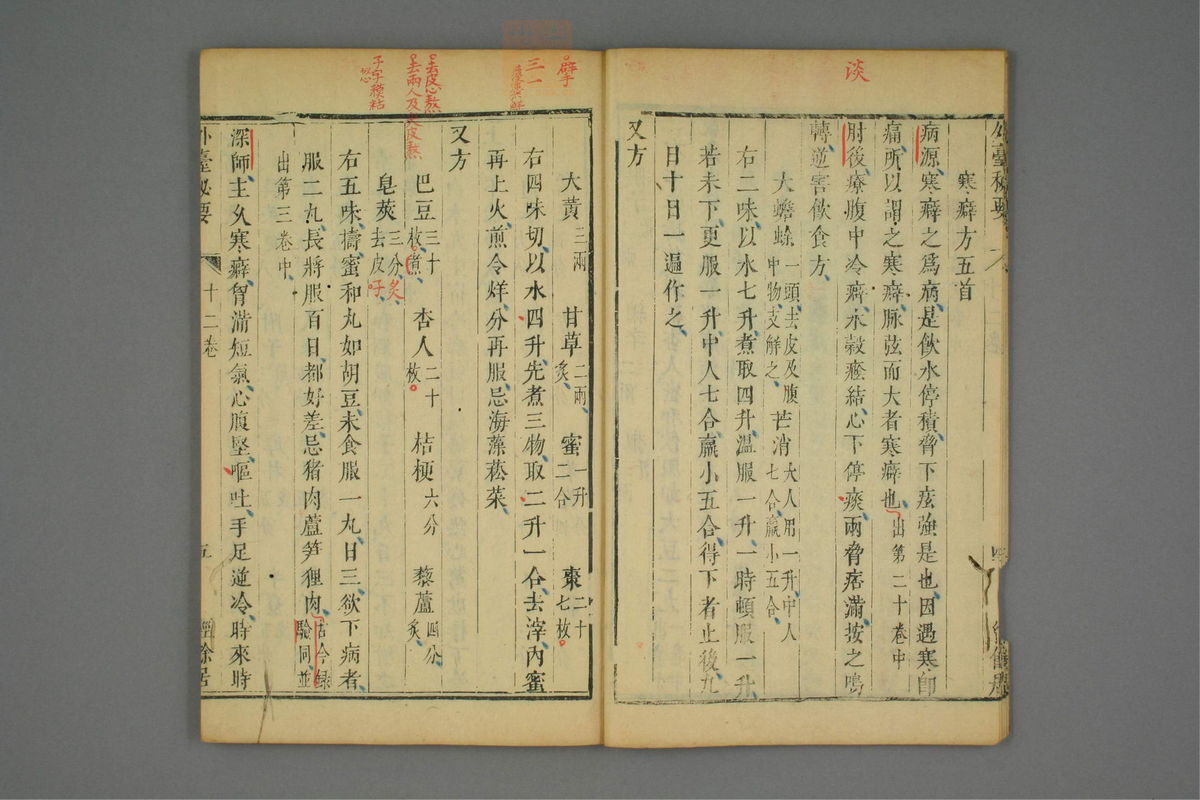 淡
外臺秘要
寒癖方五首
病源、寒癖之爲病、是飲水停積、脅下痃強是也、因遇寒、即
痛、所以謂之寒癖、脉弦而大者寒癖也、出第二十卷中
肘後、療腹中冷癖、水穀癊結、心下停痰、兩脅痞滿、按之鳴
轉、逆害飲食方、
大蟾蜍一頭、去皮及腹中物、支解之、 芒消大人用一升、中人七合、羸小五合、
右二味、以水七升、煮取四升、温服一升、一時頓服一升、
若未下、更服一升、中人七合、羸小五合、得下者止、後九
日十日一遍作之、
又方
擘
三
一
大黄三兩 甘草二兩、炙、 蜜一升二合 棗二十七枚
右四味切、以水四升、先煮三物、取二升一合、去滓、内蜜
再上火、煎令烊、分再服、忌海藻菘菜、
去皮心熬
去兩人及尖皮熬
又方
巴豆三十枚、煮、 杏人二十枚 桔梗六分 藜蘆四分、炙、
子字模粘
皂莢三分、炙、去皮子
右五味、擣、蜜和丸如胡豆、未食服一丸、日三、欲下病者、
服二丸、長將服百日、都好差、忌猪肉蘆笋狸肉、古今録驗同、並
出第三卷中
深師、主久寒癖、胷滿短氣、心腹堅、嘔吐、手足逆冷、時來時
外臺秘要 十二卷 五 經餘居